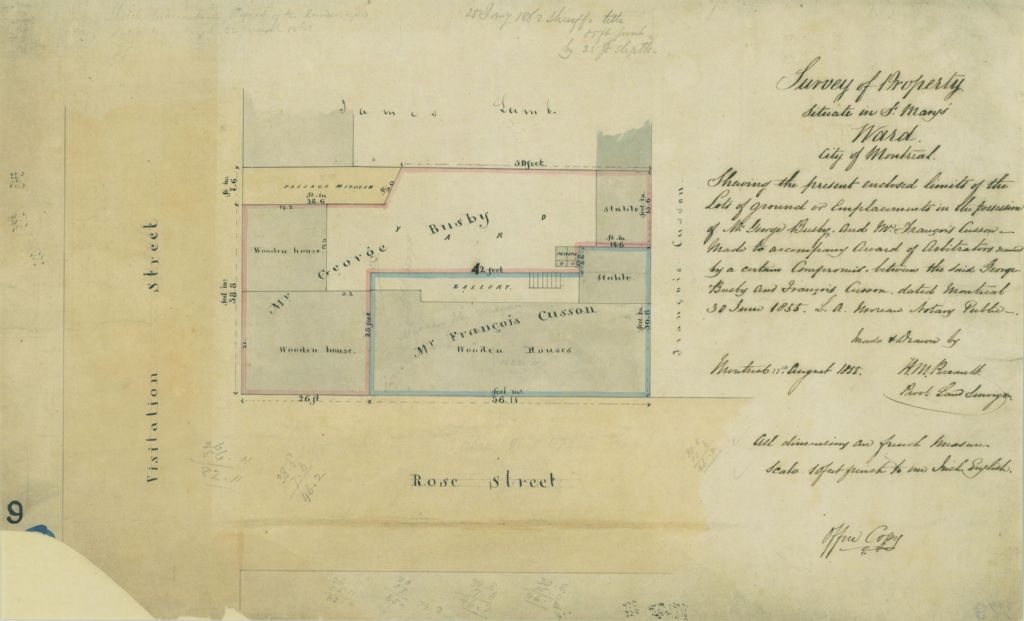 25 Jany 1862 Sheriff's title
by 25 ft depth
James Lamb.
50 feet
PASSAGE MITOYEN
ft. in.
28.6
ft. in.
7.6
Stable
ft. in.
14.6
George Busby
YARD
Mr
Wooden house
42 feet
GALLERY.
Stable
38.8
Mr François Cusson
Wooden Houses
Wooden house.
25 feet
30.8
26 ft.
feet in:
56.11
François Cusson
Visitation Street
Rose Street
9
Survey of Property
Situate in St Mary's
Ward.
City of Montreal.
Shewing the present enclosed limits of the
Lots of ground or Emplacements in the possession
of Mr George Busby, and Mr François Cusson—
Made to accompany Award of Arbitrators named
by a certain Compromis. between the said George
Busby and François Cusson. dated Montreal
30 June 1855. L. A. Moreau Notary Public—.
Made & Drawn by
Montreal August 1855. H. M. Perrault
Provl Land Surveyor
All dimensions are french Measure.
Scale. 10 feet french to one Inch English.
Office Copy
26
82.11
46.2